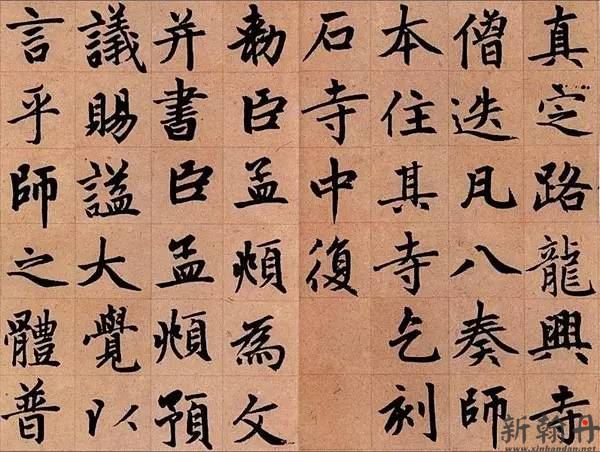 真定路龍興寺
僧迭凡八奏師
本住其寺乞刻
石寺中復
勅臣孟頫為文
并書臣孟頫預
議賜謚大覺以
言乎師之體普
新翰丹
www.xinhandan.net